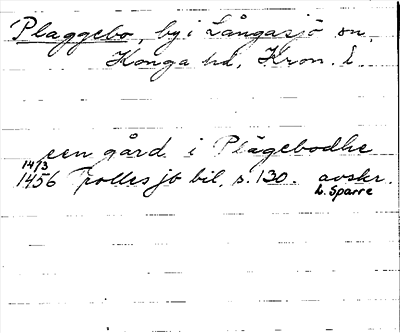 Plaggebo, by i Långasjö sn,
Konga hd, Kron. l
een gård i Plägebodhe
14/3
1456 Trolles jb bil, s. 130. avskr.
L. Sparre